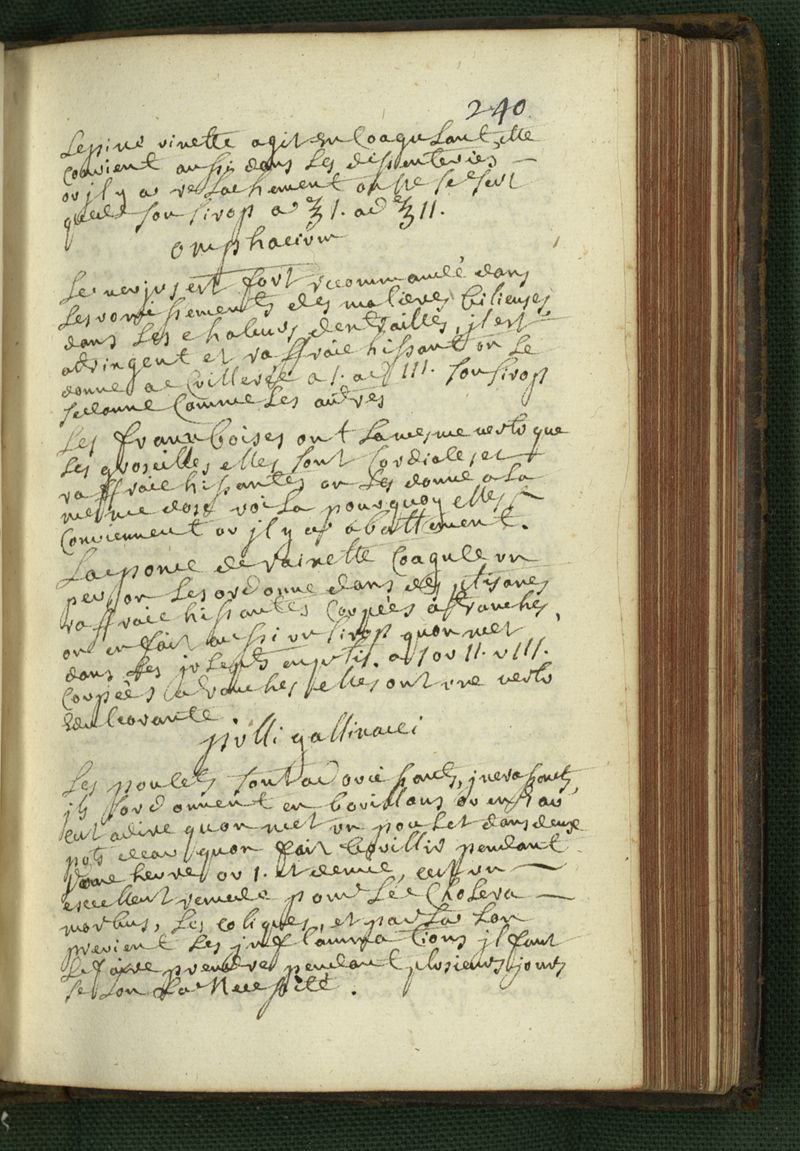 240
Lepine vinette agit en Coagulant, elle
Convient aussi dans Les dissenteries
ov jl y a relachement on se sert
que de son sirop a ℥ I. ad ℥ II.
omphacium
Le verjus est fort recommandé dans
Les vomissements des matieres bilieuses
dans Les chaleurs dentrailles, jl est
astringent et raffraichissant on Le
donne a Cvillerée a I. ad III. son sirop
se donne Comme Les autres
Les framboises ont La mesme vertv que
Les groseilles elles sont Cordiales et
raffraichissantes on Les donne a La
mesme dose voila pourquoy elles
Conviennent ov jl y a abattement.
La pome de rainette Coagule vn
pev, on Les ordonne dans des ptisanes
raffraichissantes Coupées a tranches,
on en fait aussi vn sirop quon met
dans Les jvleps en ptis. a I ov II. v III.
Coupées a tranches elles ont vne vertv
edulcorante.
pvlli gallinacei
Les poulets sont adovcissants,
jls sordonnent en bovillons ov en eav
cest a dire quon met vn poulet dans deux
pots deav quon fait bovillir pendant
vne hevre ov I. et demie, cest vn
excellent remede pour Le Cholera
morbus, Les coliques, et par La Lon
previent Les jnflammations jl faut
Le faire prendre pendant plusieurs jours
selon La Necessité.